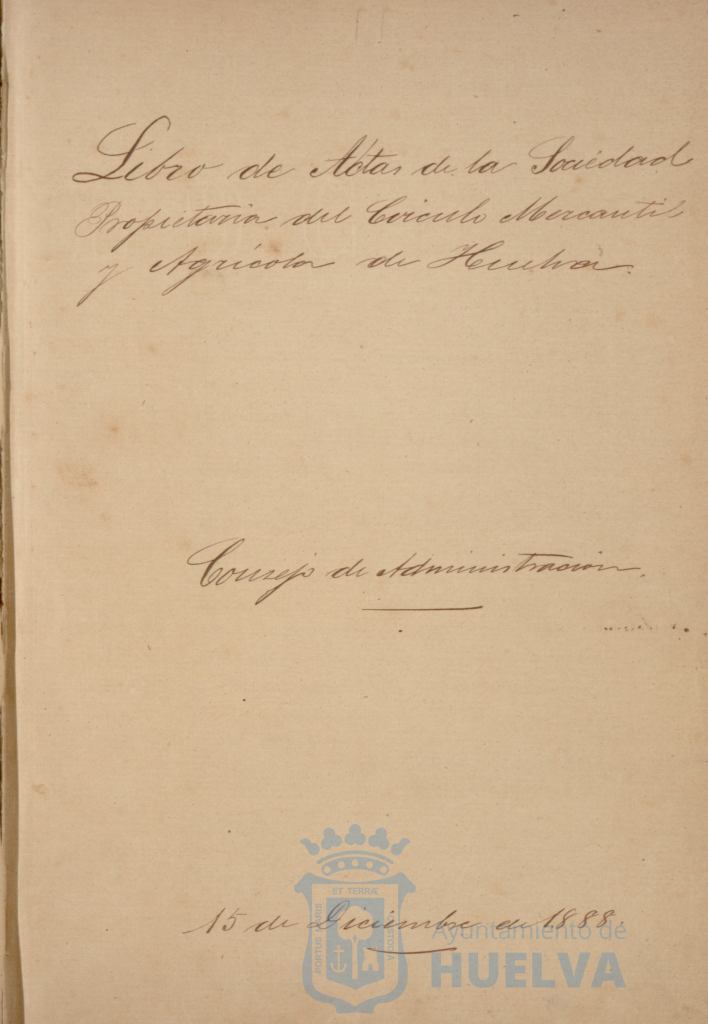 Libro de Actas de la Sociedad
Propietaria del Circulo Mercantil
y Agrícola de Huelva.
Consejo de Administracion.
ET TERRÆ
PORTUS MARIS
CUSTODIA
15 de Diciembre de 1888.
Ayuntamiento de
HUELVA